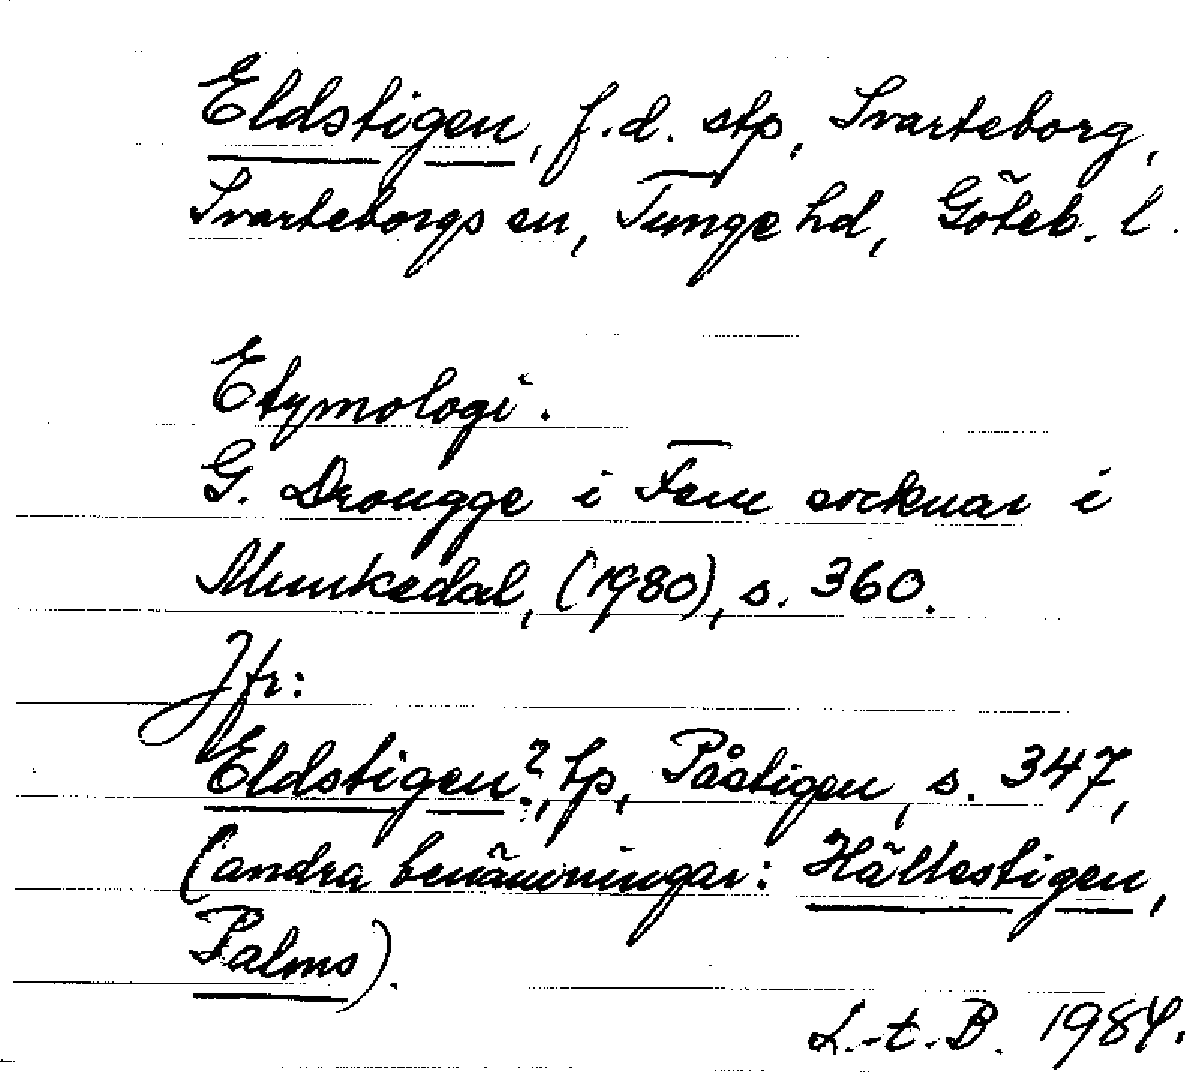 Eldstigen, f.d. stp, Svarteborg,
Svarteborgs sn, Tunge hd, Göteb. l.
Etymologi.
G. Drougge i Fem socknar i
Munkedal, (1980), s. 360.
Jfr:
Eldstigen?, tp, Påstigen, s. 347,
(andra benämningar: Hällestigen,
Palms).
L.-t.B. 1984.